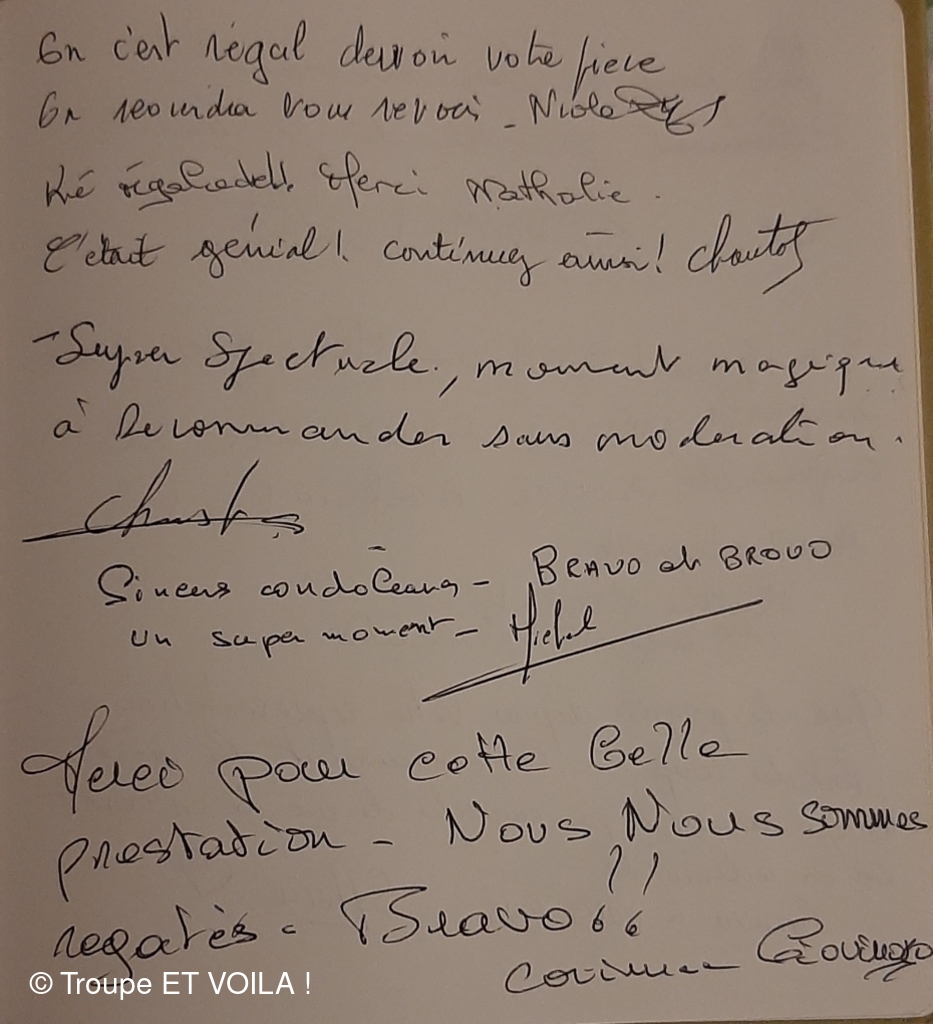 On c'est régal devoir votre piece
On reviendra vous revoir - Nicole
régalade!! Merci Nathalie.
C'était génial! continuez ainsi! Chantal
- Super Spectacle, moment magique
à Recommander sans moderation.
Sincers condoléans - BRAVO et BROVO
un super moment - Michel
Merci pour cette belle
prestation - Nous Nous sommes
regalés - Bravo !!
Corinne
© Troupe ET VOILA !